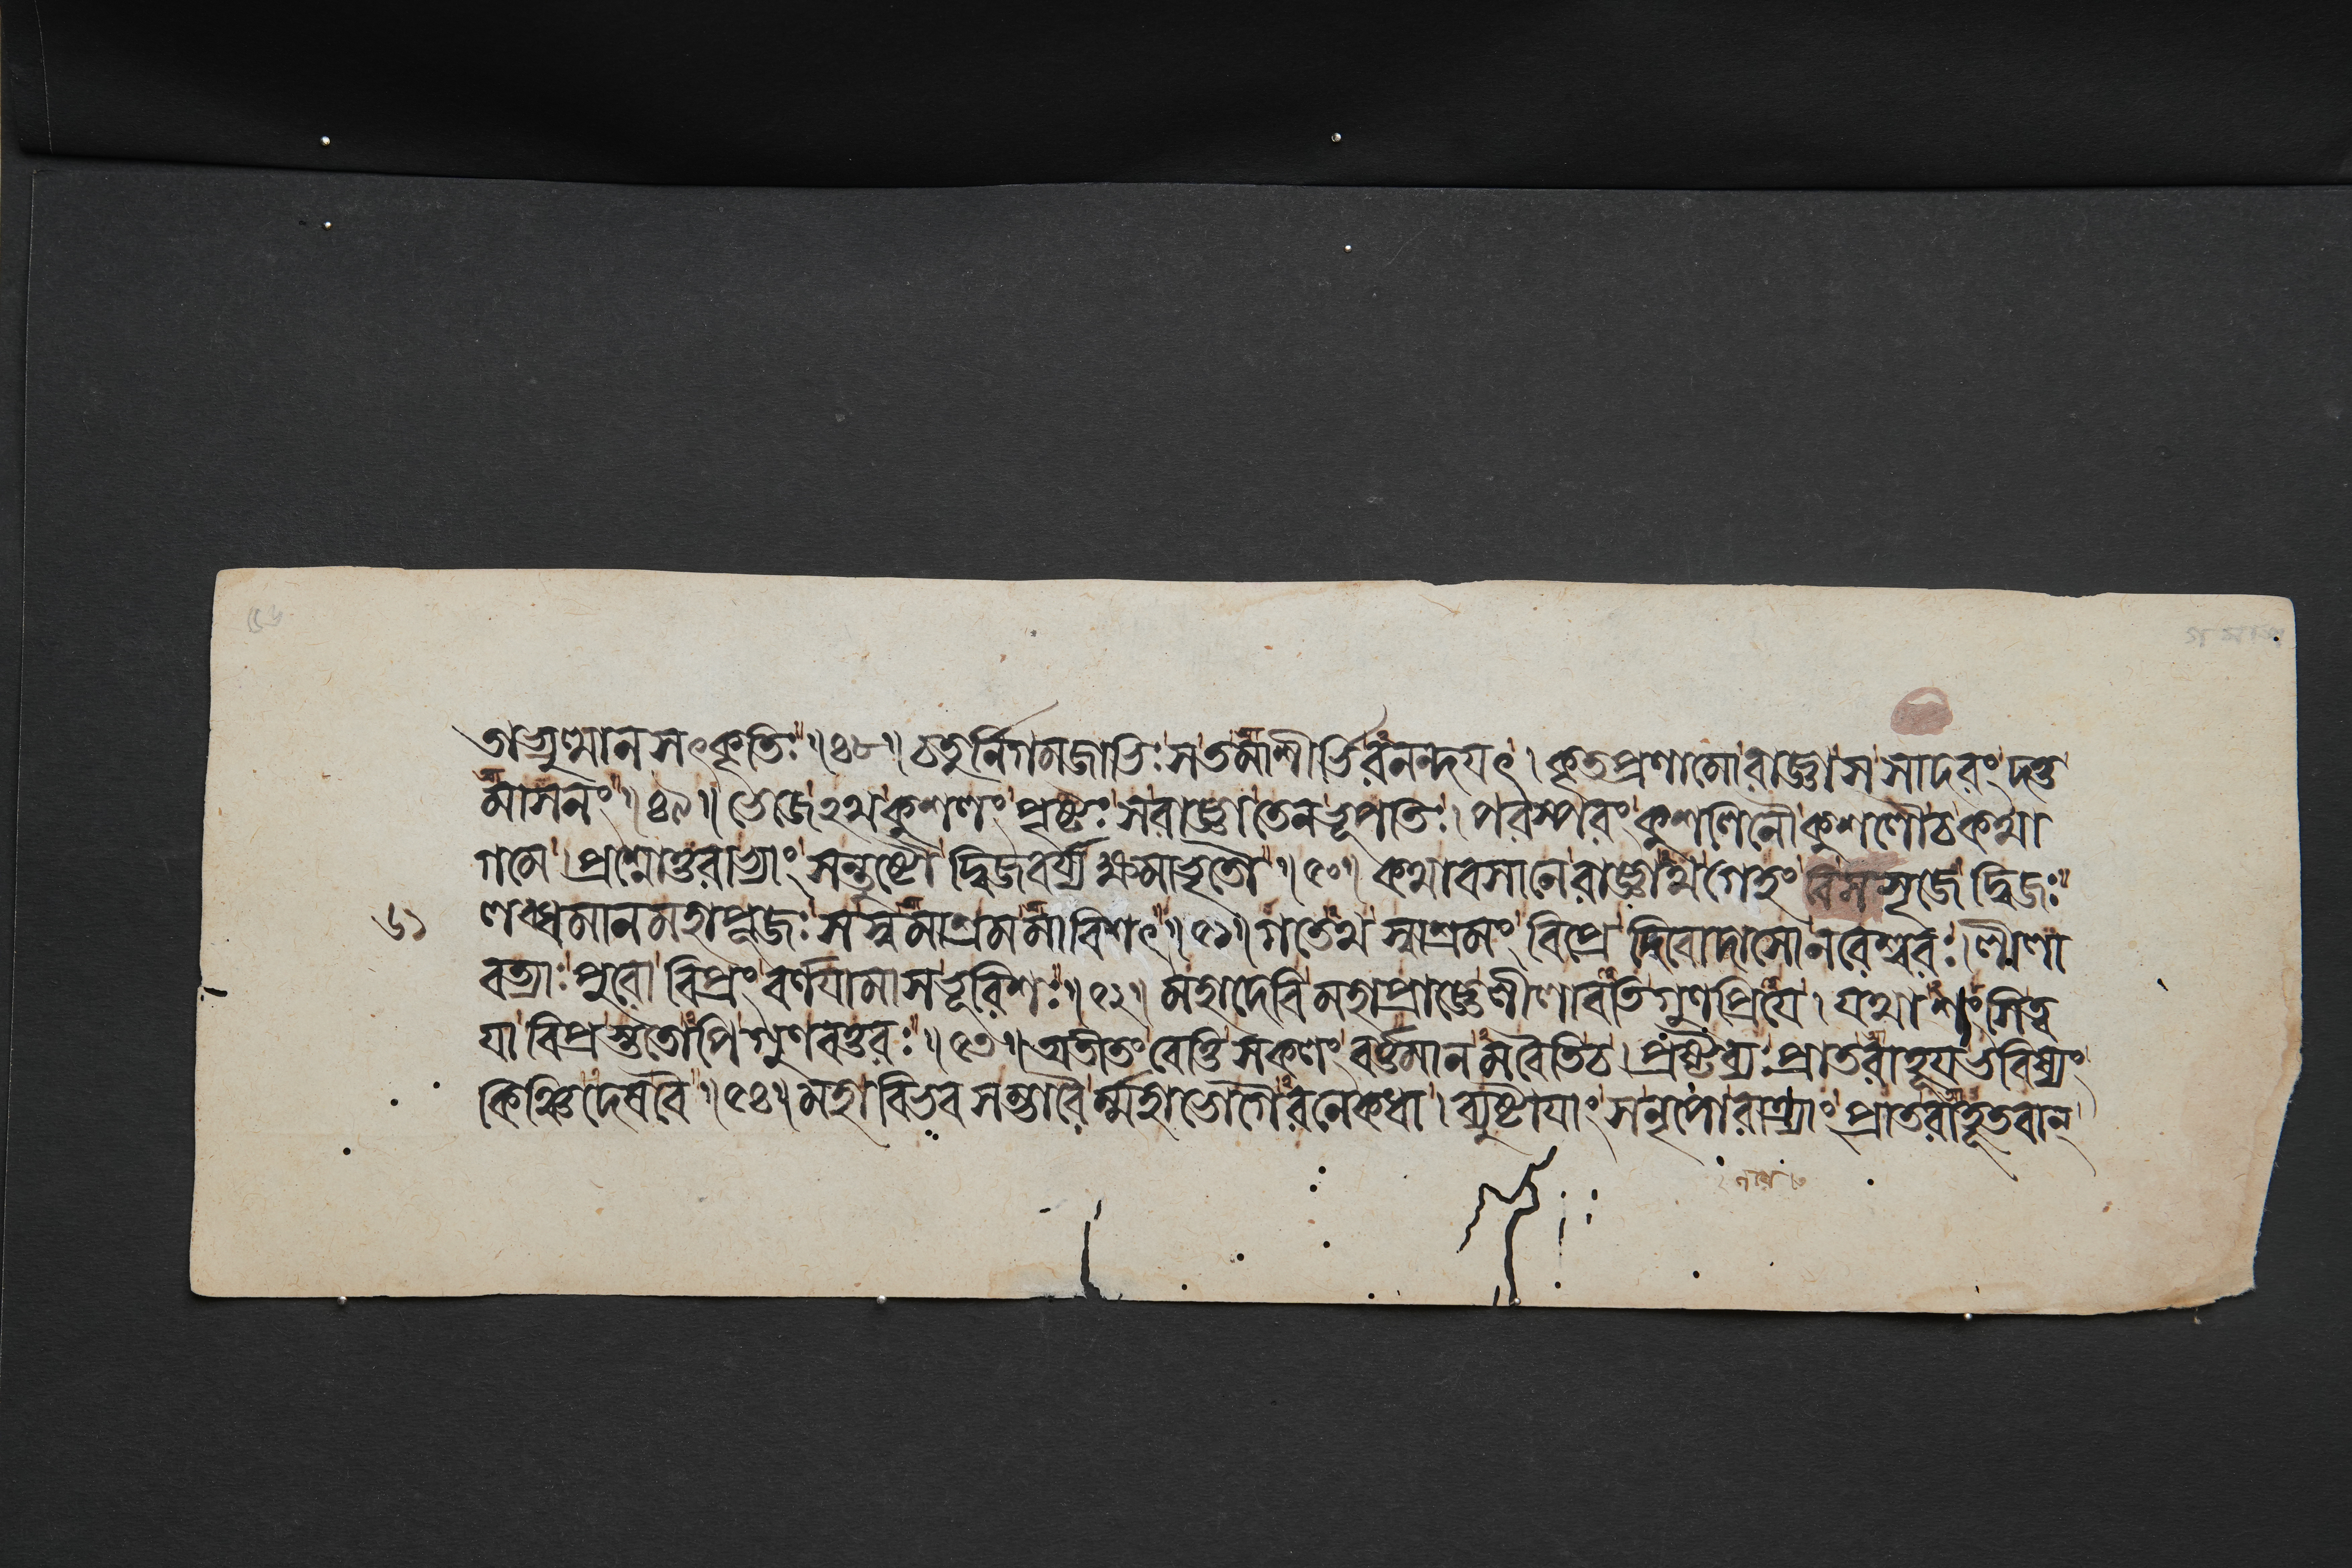 তাভ্যুত্থানসৎকৃতিঃ॥৪৮॥ চতুর্নিগমজাভিঃ স তমাশীর্ভিরনন্দযৎ। কৃতপ্রণামো রাজ্ঞা স সাদরং দত্ত
মাসনং॥৪৯॥ ভেজেঽথ কুশলং পৃষ্টঃ স রাজ্ঞা তেন ভূপতিঃ। পরস্পরং কুশলিনৌ কুশলৌ চ কথা
গমে। প্রশ্নোত্তরাভ্যাং সন্তুষ্টৌ দ্বিজবর্য্যক্ষমাভৃতৌ॥৫০॥ কথাবসানে রাজ্ঞাথ গেহং বিসসৃজে দ্বিজঃ
৬১
লব্ধমানমহাপূজঃ স স্বমাশ্রমমাবিশৎ॥৫১॥ গতেথ স্বাশ্রমং বিপ্রে দিবোদাসো নরেশ্বরঃ। লীলা
বত্যাঃ পুরো বিপ্রং বর্ণযামাস ভূরিশঃ॥৫২॥ মহাদেবি মহাপ্রাজ্ঞে লীলাবতি গুণপ্রিযে। যথাশংসি ত্ব
যা বিপ্রস্ততোপি গুণবত্তরঃ॥৫৩॥ অতীতং বেত্তি সকলং বর্ত্তমানমবৈতি চ। প্রষ্টব্যঃ প্রাতরাহূয ভবিষ্যং
কিঞ্চিদেষ বৈ॥৫৪॥ মহাবিভবসম্ভারৈর্ম্মহাভোগৈরনেকধা। ব্যুষ্টাযাং স নৃপো রাত্র্যাং প্রাতরাহূতবান্